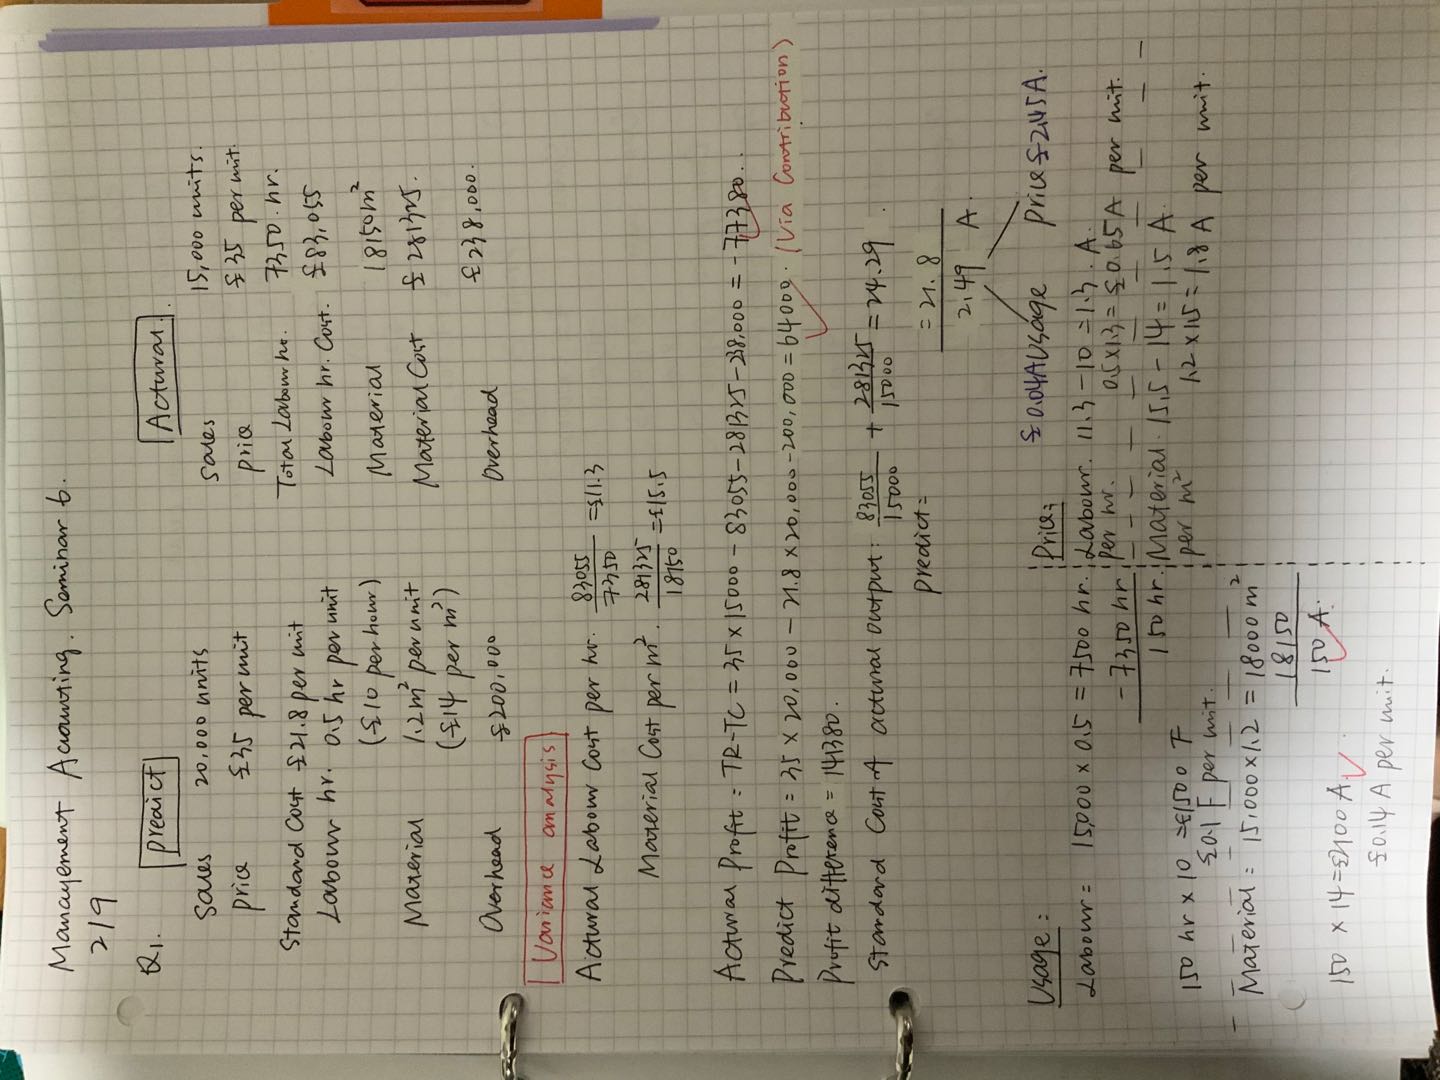 Management Accounting. Seminar 6.
219
Q1.
Predict
Sales 20,000 units
Price £35 per unit
Standard Cost £21.8 per unit
Labour hr. 0.5 hr per unit
(£10 per hour)
Material 1.2m² per unit
(£14 per m²)
Overhead £200,000
Actural.
Sales 15,000 units.
Price £35 per unit.
Total Labour hr. 7350 hr.
Labour hr. Cost. £83,055
Material 18150m²
Material Cost £281325.
Overhead £238,000.
Variance analysis
Actural Labour Cost per hr. 83055/7350 = £11.3
Material Cost per m². 281325/18150 = £15.5
Actural Profit = TR-TC = 35 × 15000 - 83055 - 281325 - 238,000 = -77380.
Predict Profit = 35 × 20,000 - 21.8 × 20,000 - 200,000 = 64000. (Via Contribution)
Profit difference = 141380.
Standard Cost of actural output: 83055/15000 + 281325/15000 = 24.29
Predict = = 21.8
2.49 A.
£0.04A Usage Price £2.45A.
Usage:
Labour = 15,000 × 0.5 = 7500 hr.
- 7350 hr
150 hr.
150 hr × 10 = £1500 F
£0.1 F per unit.
Material = 15,000 × 1.2 = 18000 m²
18150
150 A.
150 × 14 = £2100 A
£0.14 A per unit.
Price:
Labour. 11.3 - 10 = 1.3. A.
per hr. 0.5 × 1.3 = £0.65 A per unit.
Material. 15.5 - 14 = 1.5 A.
per m² 1.2 × 1.5 = 1.8 A per unit.